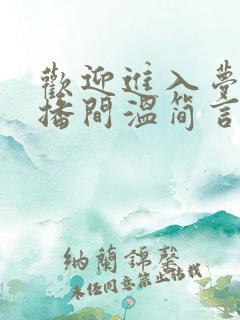 歡迎進入夢
播間溫簡言
納蘭錦馨
未经同意禁止转载